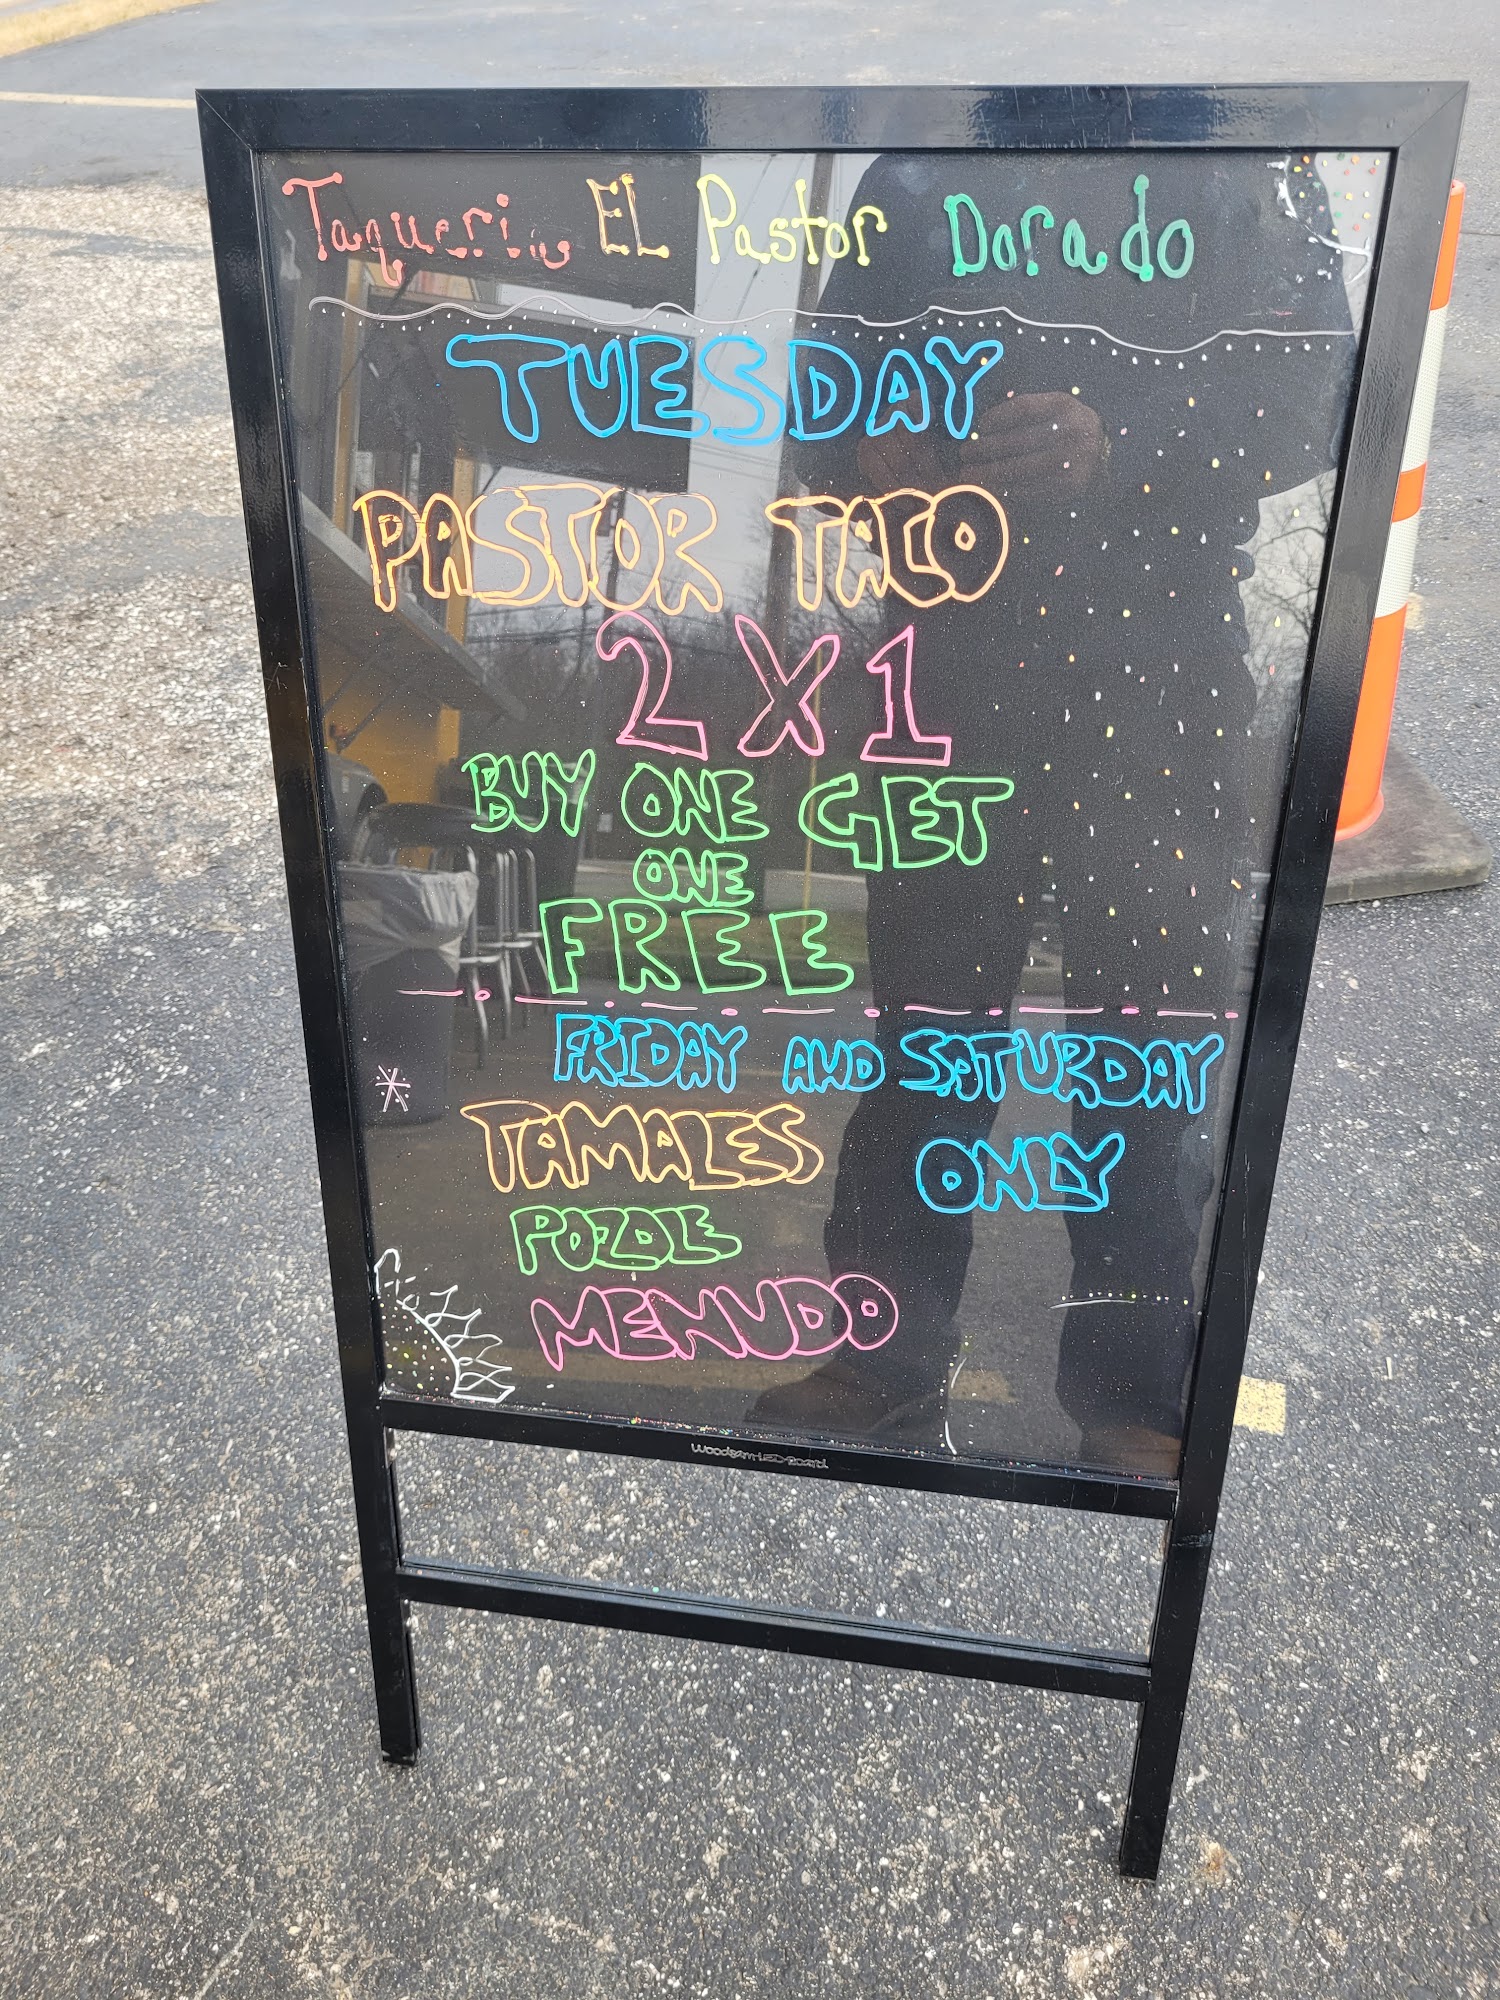 Taqueria EL Pastor Dorado
TUESDAY
PASTOR TACO
2 X 1
BUY ONE GET
ONE
FREE
FRIDAY AND SATURDAY
TAMALES ONLY
POZOLE
MENUDO
Woodsam LED Board